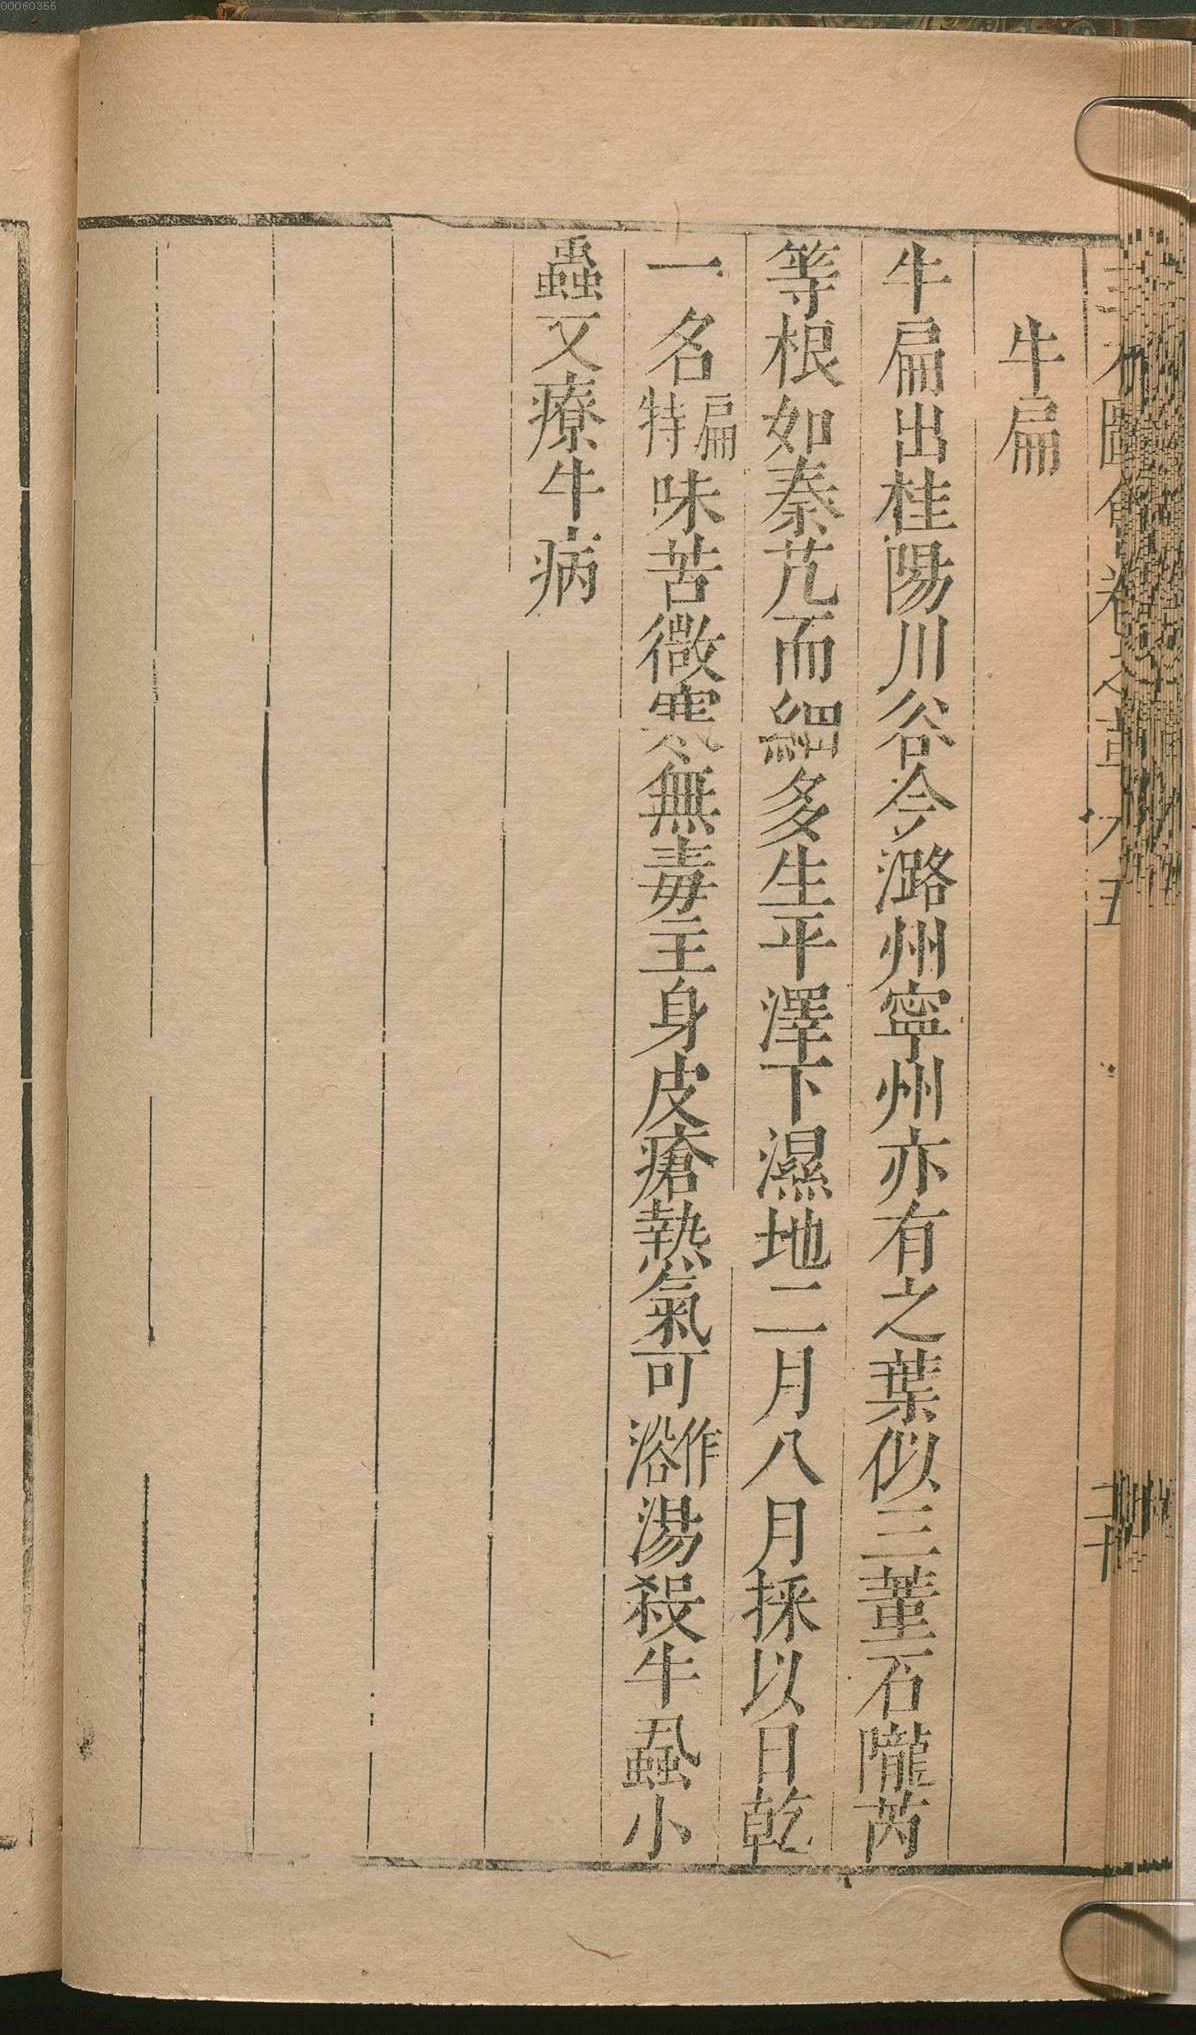 00060355
牛扁
牛扁出桂陽川谷今潞州寧州亦有之葉似三菫石隴芮
等根如秦艽而細多生平澤下濕地二月八月採以日乾
一名扁特味苦微寒無毒主身皮瘡熱氣可作浴湯殺牛蝨小
蟲又療牛病
二十